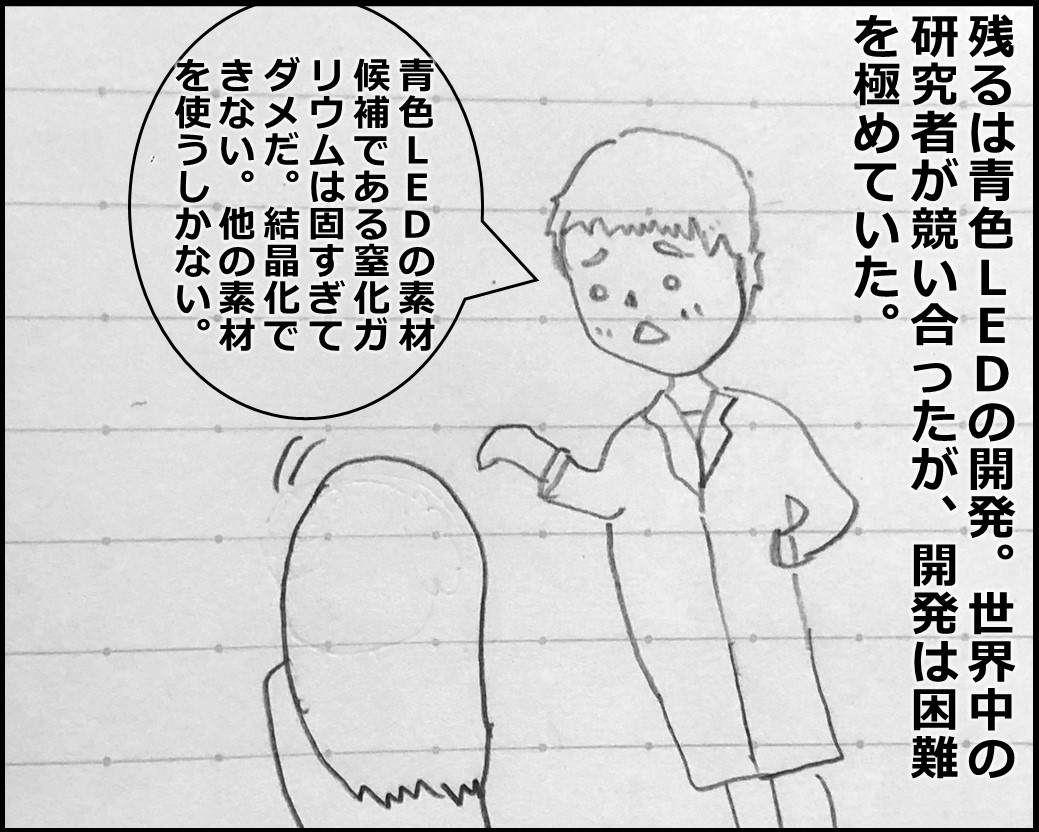 残るは青色ＬＥＤの開発。世界中の
研究者が競い合ったが、開発は困難
を極めていた。
青色ＬＥＤの素材
候補である窒化ガ
リウムは固すぎて
ダメだ。結晶化で
きない。他の素材
を使うしかない。